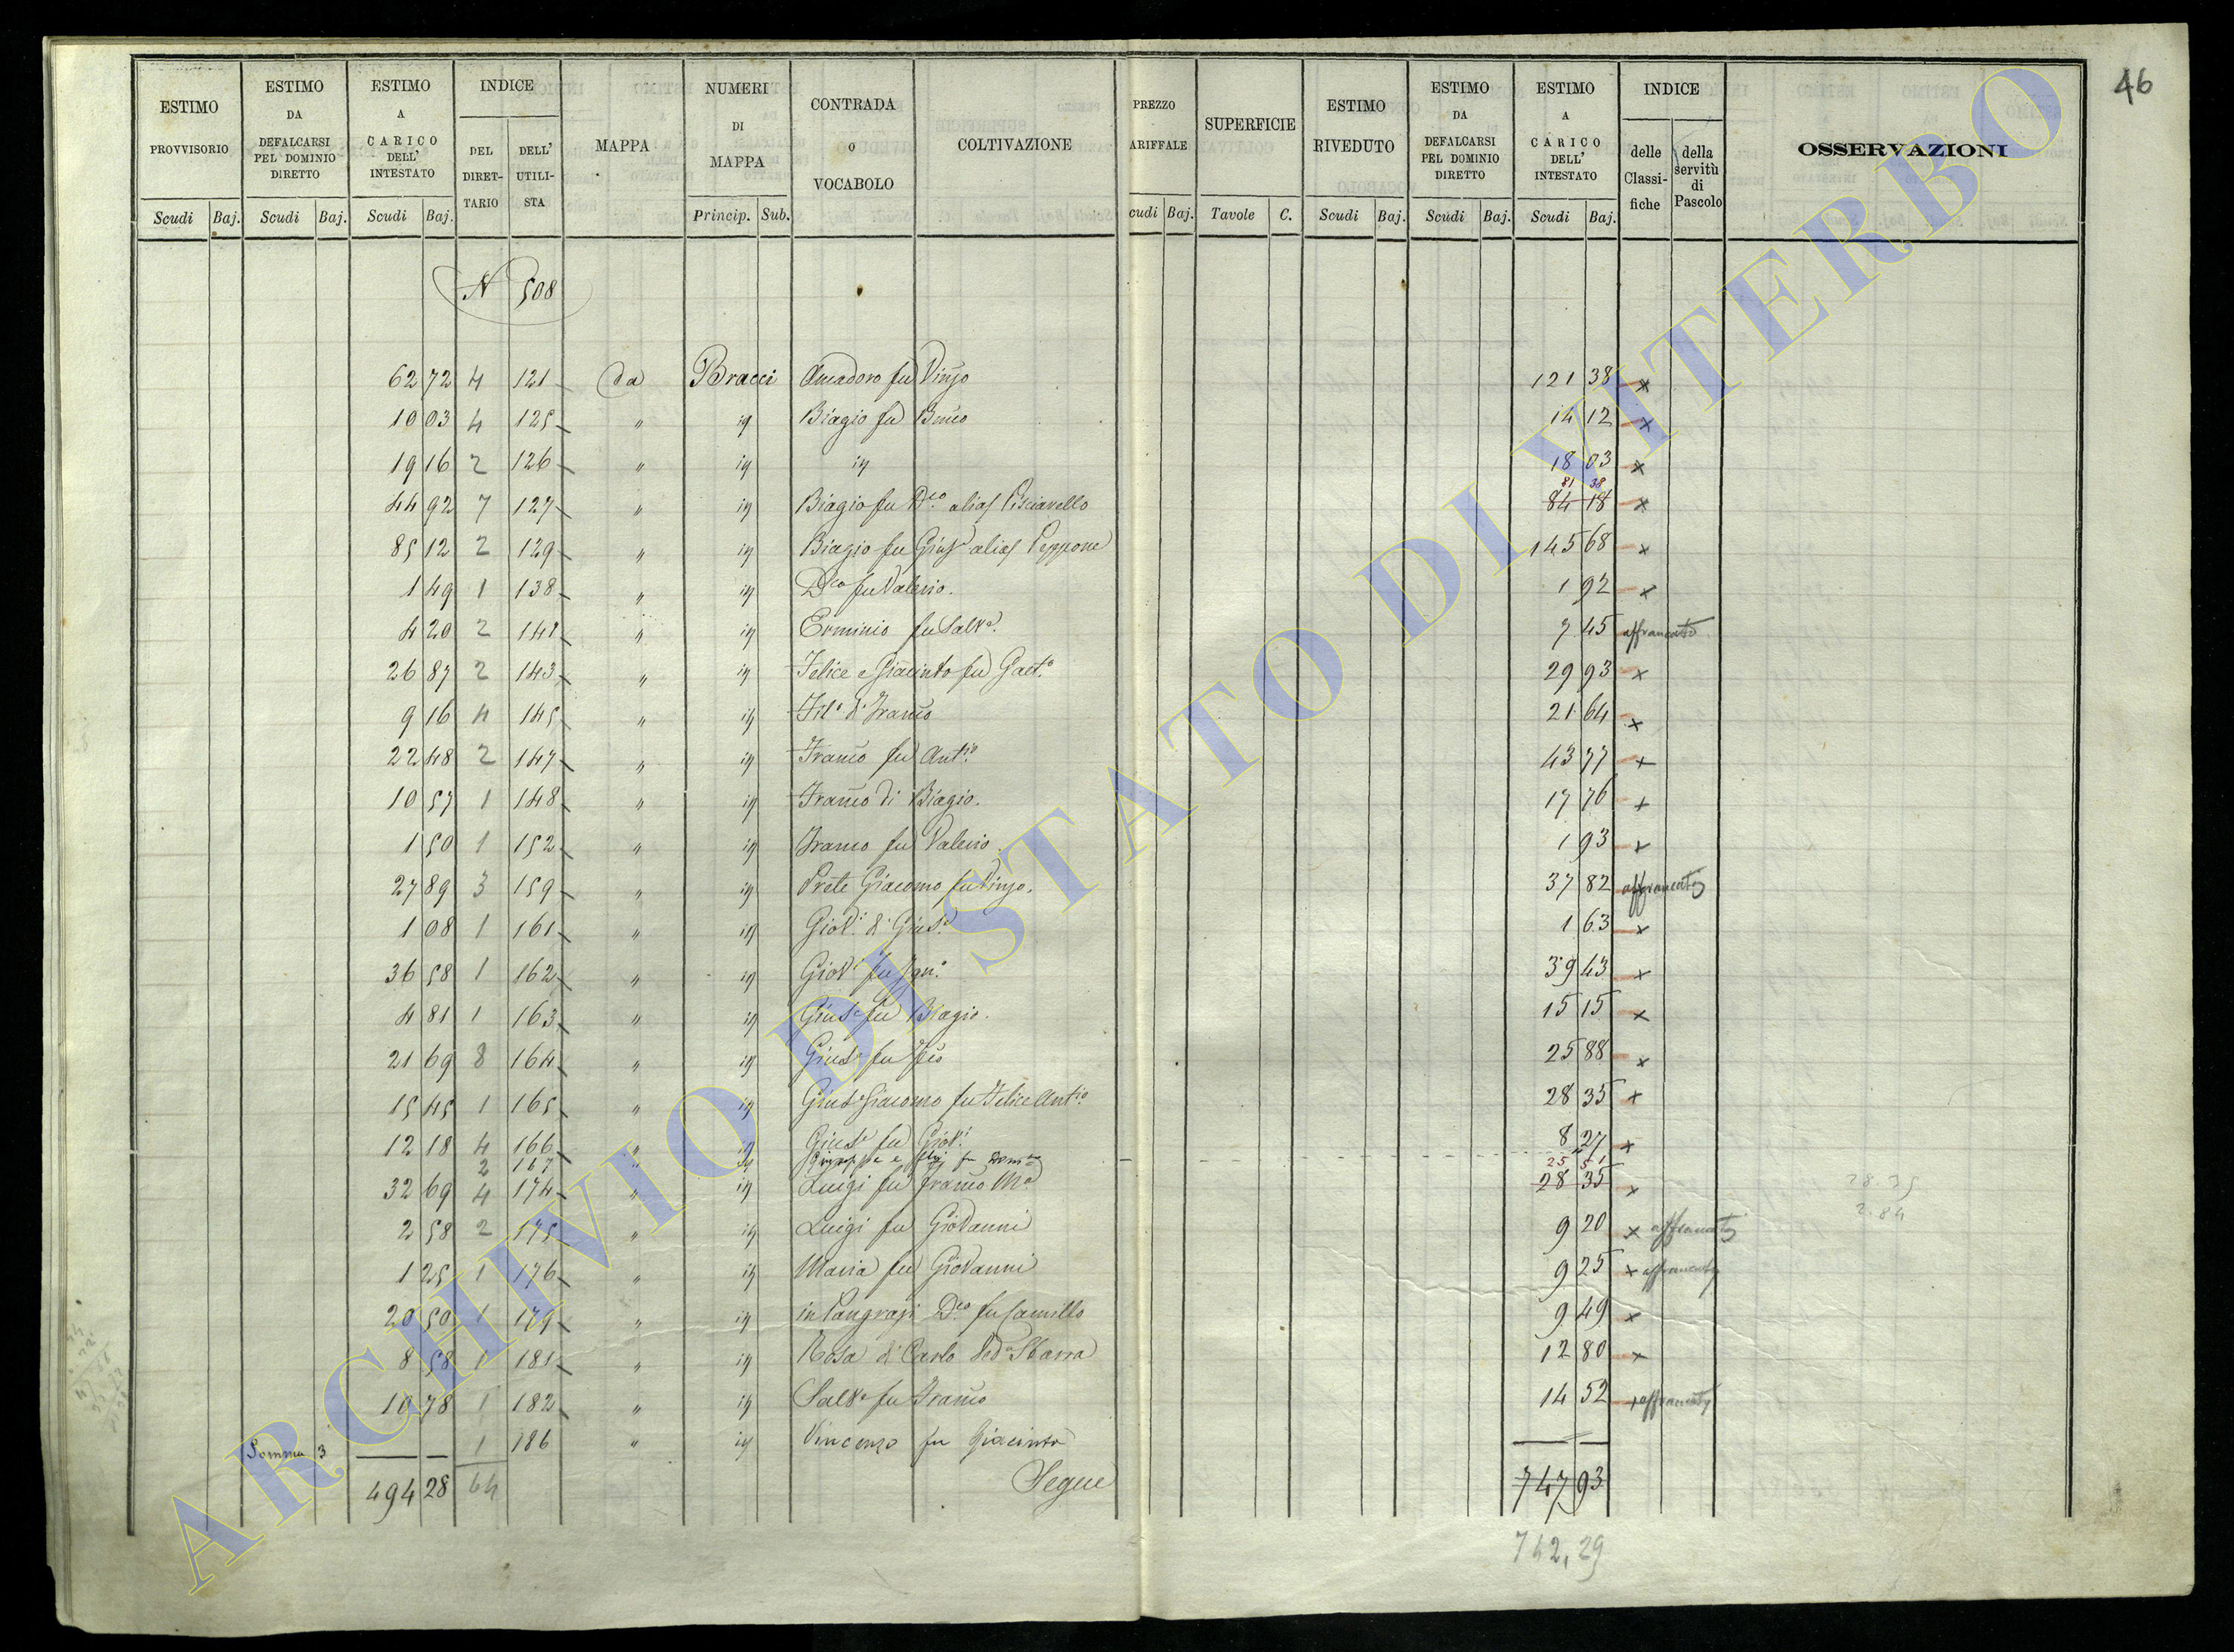 46
ESTIMO PROVVISORIO
ESTIMO DA DEFALCARSI PEL DOMINIO DIRETTO
ESTIMO A CARICO DELL' INTESTATO
INDICE
DEL DIRETTARIO
DELL' UTILISTA
MAPPA
NUMERI DI MAPPA
CONTRADA O VOCABOLO
COLTIVAZIONE
PREZZO ARIFFALE
SUPERFICIE
ESTIMO RIVEDUTO
ESTIMO DA DEFALCARSI PEL DOMINIO DIRETTO
ESTIMO A CARICO DELL' INTESTATO
INDICE
delle Classifiche
della servitù di Pascolo
OSSERVAZIONI
Scudi Baj. Scudi Baj. Scudi Baj. Princip. Sub. cudi Baj. Tavole C. Scudi Baj. Scudi Baj. Scudi Baj.
N 508
62 72 4 121 Da Bracci Amadoro fu Vinzo 121 38 x
10 03 4 125 " id Biagio fu 14 12 x
19 16 2 126 " id id 18 03 x
81 38
44 92 7 127 " id Biagio fu Dco alias Pisciarello 84 18 x
85 12 2 129 " id Biagio fu Gius. alias Peppone 145 68 x
1 49 1 138 " id Dco fu Valerio. 1 92 x
4 20 2 141 " id Erminio fu Salve. 7 45 affrancato
26 87 2 143 " id Felice e Giacinto fu Gaet.o 29 93 x
9 16 4 145 " id Fil.o di Franco 21 64 x
22 48 2 147 " id Franco fu Ant.io 43 77 x
10 57 1 148 " id Franco di Biagio. 17 76 x
1 50 1 152 " id Franco fu Valerio. 1 93 x
27 89 3 159 " id Prete Giacomo fu Vinzo. 37 82 affrancato
1 08 1 161 " id Giov.i di Gius.e 1 63 x
36 58 1 162 " id Giov.i fu 39 43 x
4 81 1 163 " id Gius.e fu Biagio. 15 15 x
21 69 8 164 " id Gius.e fu 25 88 x
15 45 1 165 " id Gius.e Giacomo fu Felice Ant.io 28 35 x
12 18 4 166 " id Gius.e fu Giov.i 8 27 x
2 167 " id Giuseppe e fu
25 51
32 69 4 174 " id Luigi fu Franco Ma 28 35 x 28.35
2 58 2 175 " id Luigi fu Giovanni 9 20 x affrancato 2.84
1 25 1 176 " id Maria fu Giovanni 9 25 x affrancato
20 50 1 179 " id in Pangrazi Dco fu Camillo 9 49 x
8 58 1 181 " id Rosa di Carlo Ved.a Sbarra 12 80 x
10 78 1 182 " id Salve fu Franco 14 52 x affrancato
1 186 " id Vincenzo fu Giacinto
Somma 3
494 28 64 Segue 747 93
742,29
ARCHIVIO DI STATO DI VITERBO